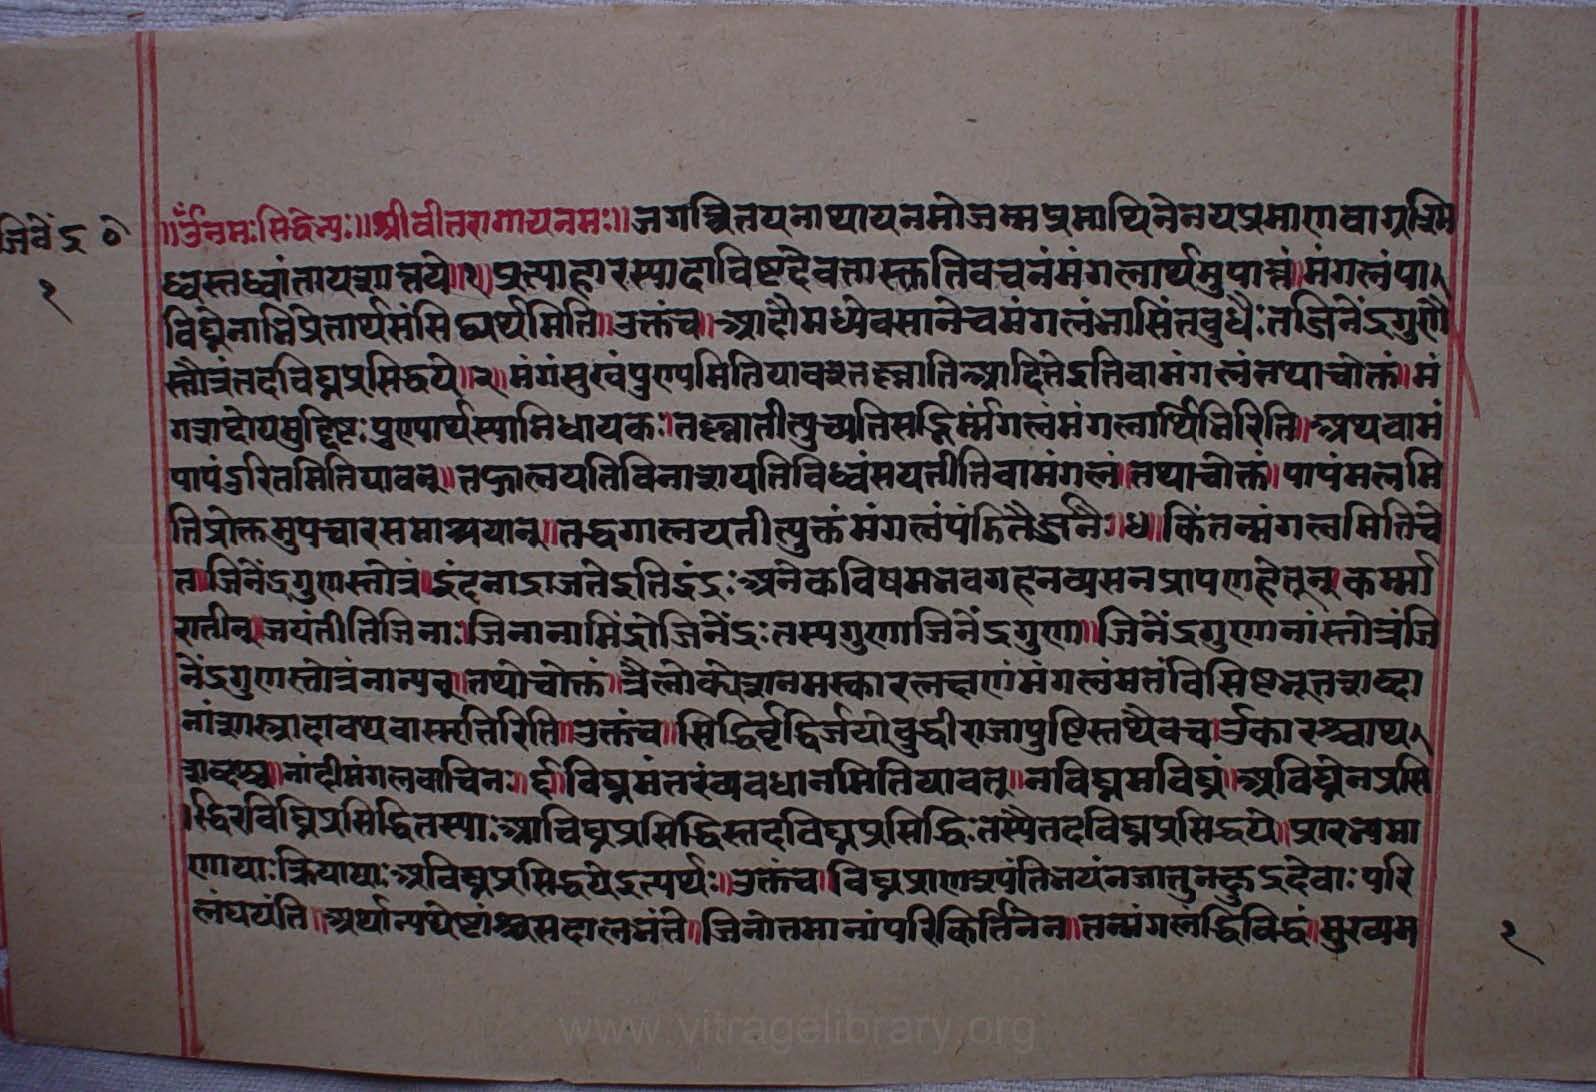 जिनेंद्र०
१
॥ॐनमःसिद्धेभ्यः॥श्रीवीतरागायनमः॥जगत्त्रितयनाथायनमोजन्मप्रमाथिनेनयप्रमाणवाग्रश्मि
ध्वस्तध्वांतायशान्तये॥१॥प्रत्याहारस्यादाविष्टदेवतास्क्तातिवचनंमंगलार्थमुपात्तं॥मंगलंपा
विघ्नेनाभिप्रेतार्थसंसिद्ध्यर्थमिति॥उक्तंच॥आदौमध्येवसानेचमंगलंभासिंतबुधैःतज्जिनेंद्रगुणौ
स्तौत्रंतदविघ्नप्रसिद्धये॥२॥मंगंसुखंपुण्यमितियावत्तल्लातिआदितेइतिवामंगलंतथाचोक्तं॥मं
गशब्दोयमुद्दिष्टःपुण्यार्थस्याभिधायकः।तल्लातीत्युच्यतिसद्भिर्म्मंगलंमंगलार्थिभिरिति॥अथवामं
पापंदुरितमितियावत्॥तद्गालयतिविनाशयतिविध्वंसयतीतिवामंगलं।तथाचोक्तं।पापंमलमि
तिप्रोक्तमुपचारसमाश्रयात्॥तद्धगालयतीत्युक्तंमंगलंपंडितैर्ज्जनैः॥४॥किंतन्मंगलमितिचे
त।जिनेंद्रगुणस्तोत्रं।इंदनाद्राजतेइतिइंद्रःअनेकविषमभवगहनव्यसनप्रापणहेतून्।कर्म्मा
रातीन्।जयंतीतिजिनाः।जिनानामिंद्रोजिनेंद्रःतस्यगुणाजिनेंद्रगुणा॥जिनेंद्रगुणानांस्तोत्रंजि
नेंद्रगुणस्तोत्रंनान्यत्॥तथोचोक्तं॥त्रैलोक्येशनमस्कारलक्षणंमंगलंमतंविसिष्टभूतशब्दा
नांशास्त्रादावथवास्मृतिरिति॥उक्तंच॥सिद्धिर्वृद्धिर्जयोबुद्धीराजापुष्टिस्तथैवच।ॐकारश्चाथ
शब्दश्च॥नांदीमंगलवाचिनः॥६॥विघ्नमंतरंव्यवधानमितियावत्॥नविघ्नमविघ्नं॥अविघ्नेनप्रसि
द्धिरविघ्निप्रसिद्धितस्याःआविघ्नप्रसिद्धिस्तदविघ्नप्रसिद्धिःतस्यैतदविघ्नप्रसिद्धये॥प्रारभ्यमा
णायाःक्रियायाःअविघ्नप्रसिद्धयेइत्यर्थः॥उक्तंच॥विघ्नप्राणश्यंतिभयंनजातुनक्षुद्रदेवाःपरि
लंघयंति॥अर्थान्यथेष्टांश्चसदालभंते॥जिनोत्तमानांपरिकिर्त्तनेन॥तन्मंगलद्धिविद्धं।मुख्यम
१
www.vitragelibrary.org